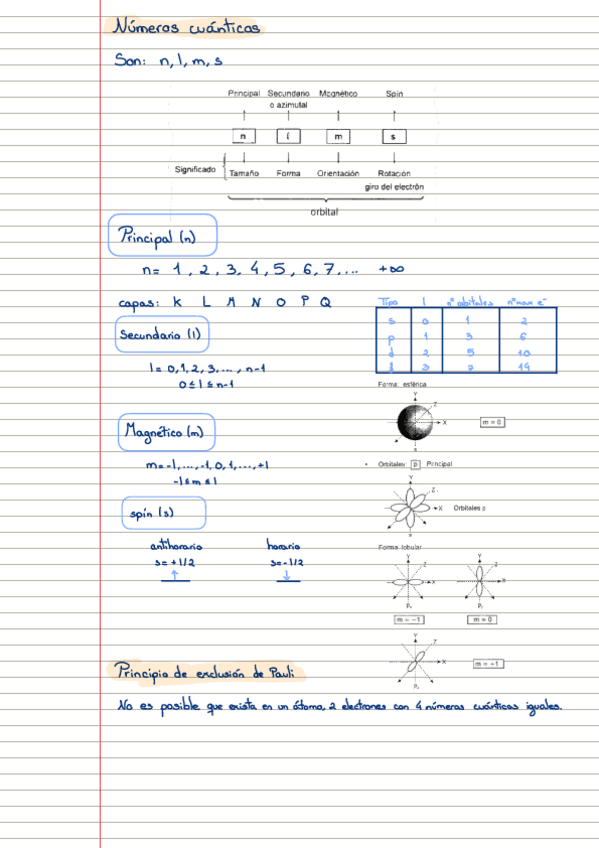 Números cuánticos
Son: n, l, m, s
Principal Secundario o azimutal Magnético Spin
n l m s
Significado Tamaño Forma Orientación Rotación giro del electrón
orbital
Principal (n)
n= 1, 2, 3, 4, 5, 6, 7, ... +∞
capas: K L M N O P Q
Tipo l nº orbitales nº max e⁻
s 0 1 2
p 1 3 6
d 2 5 10
f 3 7 14
Secundario (l)
l = 0, 1, 2, 3, ..., n-1
0 ≤ l ≤ n-1
Forma: esférica
Y
Z
X
m = 0
s
Magnético (m)
m = -l, ..., -1, 0, 1, ..., +l
-l ≤ m ≤ l
• Orbitales: p Principal
Y
Z
X Orbitales p
spín (s)
antihorario horario
s = +1/2 s = -1/2
Forma lobular
Y Y
Z Z
X X
m = -1 m = 0
Y
Z
X m = +1
Principio de exclusión de Pauli
No es posible que exista en un átomo, 2 electrones con 4 números cuánticos iguales.